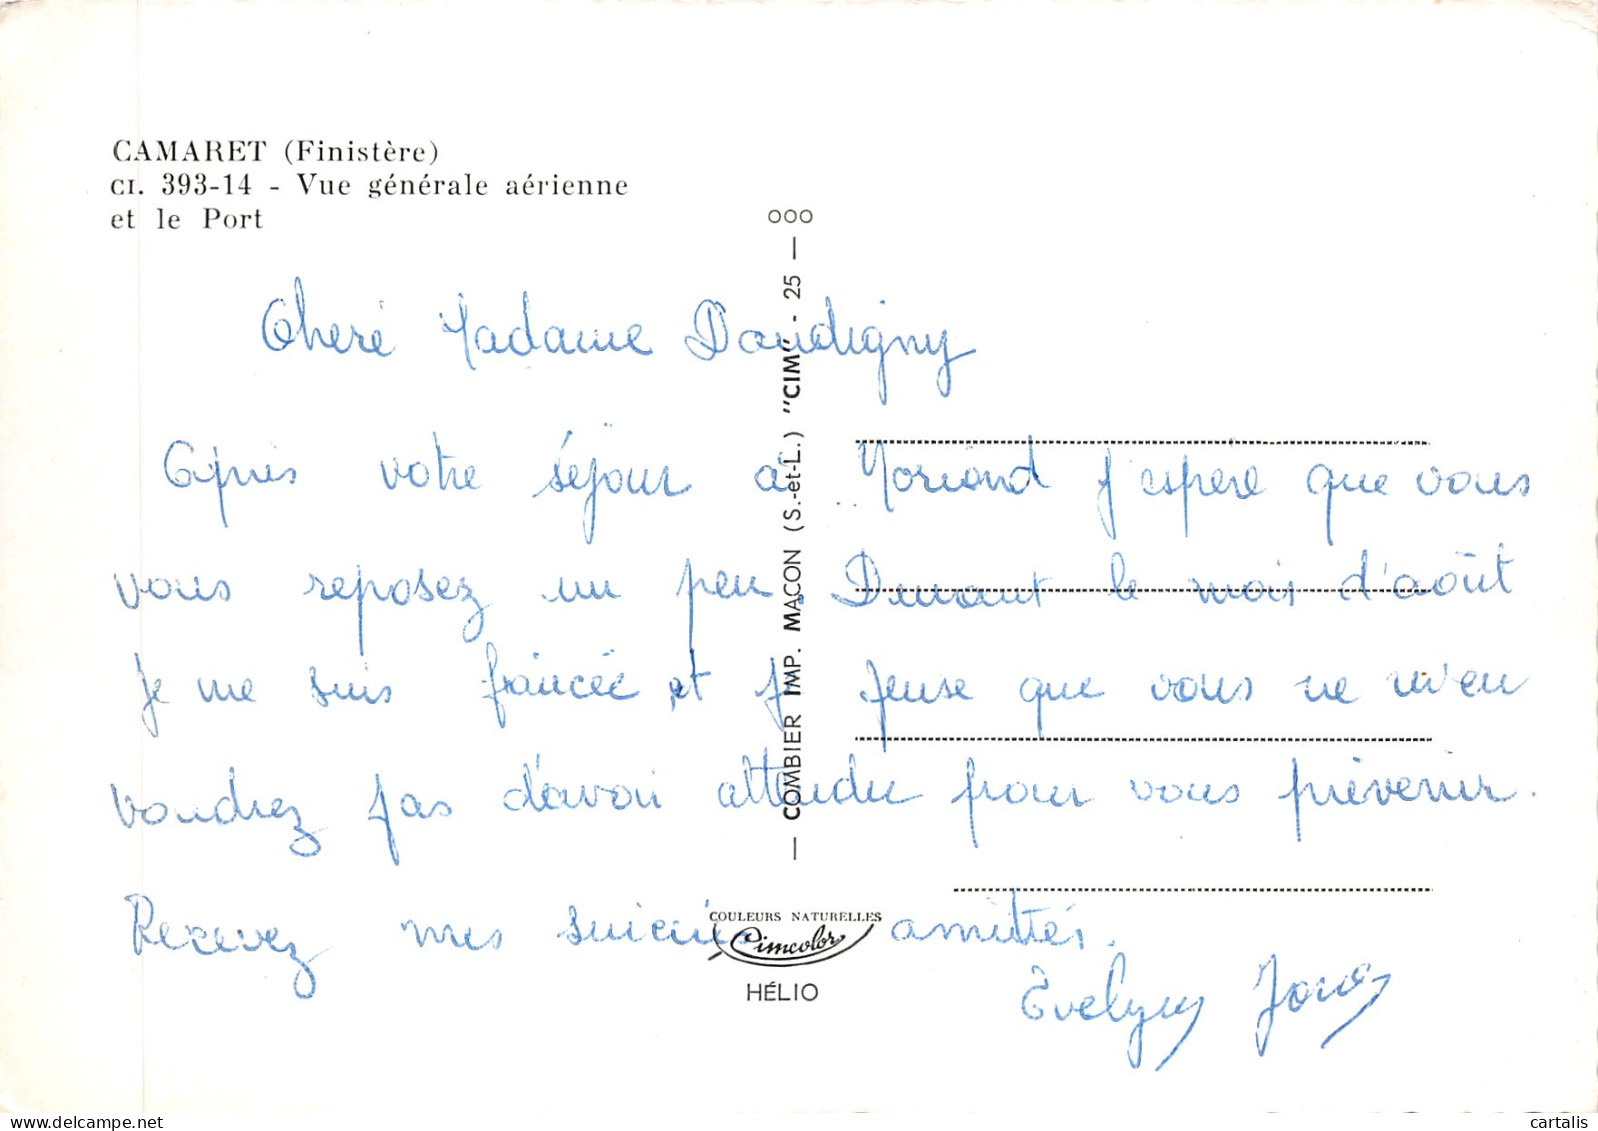 CAMARET (Finistère)
CI. 393-14 - Vue générale aérienne
et le Port
OOO
— COMBIER IMP. MACON (S.-et-L.) "CIM" - 25 —
Cheré Madame Daudigny
Après votre séjour a Moriond j'espère que vous
vous reposez un peu. Durant le mois d'août
je me suis fiancée et je pense que vous ne m'en
voudrez pas d'avoir attendu pour vous prévenir.
Recevez mes sincères amittés.
Evelyne
COULEURS NATURELLES
Cimcolor
HÉLIO
cartalis